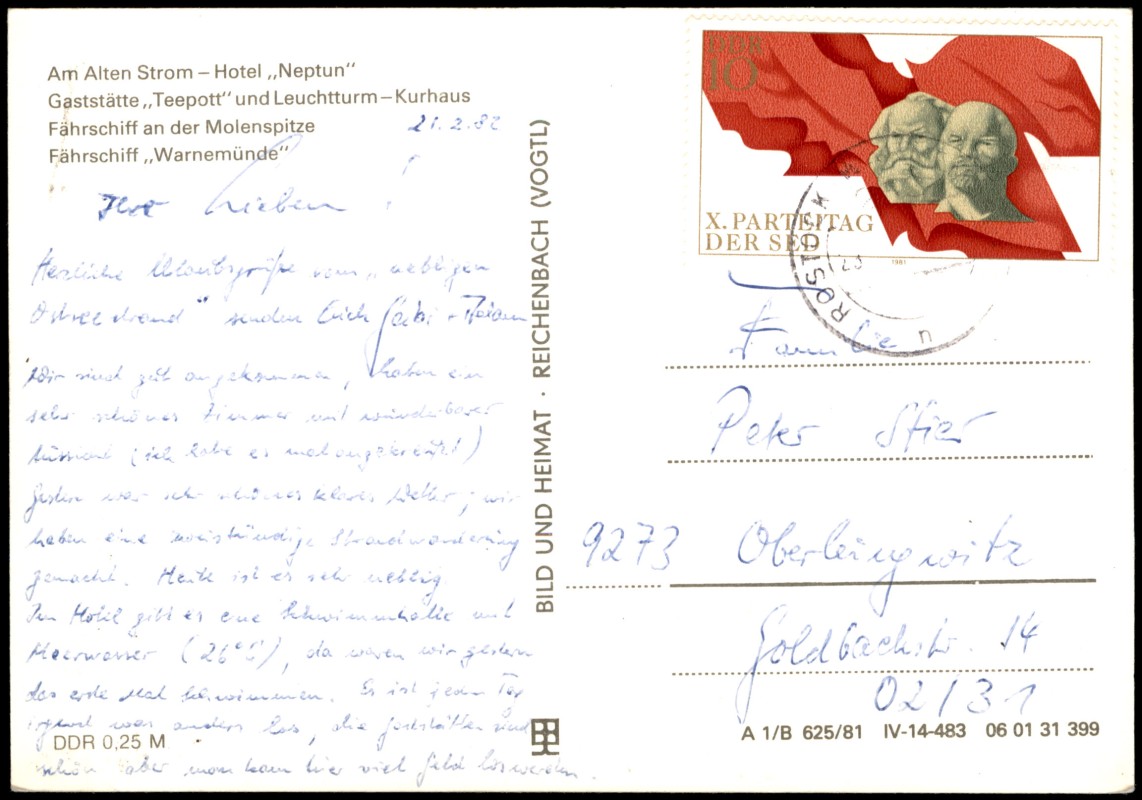 Am Alten Strom – Hotel „Neptun“
Gaststätte „Teepott“ und Leuchtturm – Kurhaus
Fährschiff an der Molenspitze
Fährschiff „Warnemünde“
21.2.82
Ihr Lieben!
Herzliche Urlaubsgrüße vom „nebligen
Ostseestrand“ senden Euch Gabi +
Wir sind gut angekommen, haben ein
sehr schönes Zimmer mit wunderbarer
Aussicht (ich habe es mal angekreuzt!)
Gestern war sehr schönes klares Wetter, wir
haben eine zweistündige Strandwanderung
gemacht. Heute ist es sehr neblig
Im Hotel gibt es eine Schwimmhalle mit
Meerwasser (26°C), da waren wir gestern
das erste Mal schwimmen. Es ist jeden Tag
irgend was anders los, die Gaststätten sind
schön aber man kann hier viel Geld loswerden.
DDR 0,25 M
BILD UND HEIMAT · REICHENBACH (VOGTL)
DDR
10
X. PARTEITAG
DER SED
1981
ROSTOCK
Familie
Peter Stier
9273 Oberlungwitz
Goldbachstr. 14
02/31
A 1/B 625/81 IV-14-483 06 01 31 399